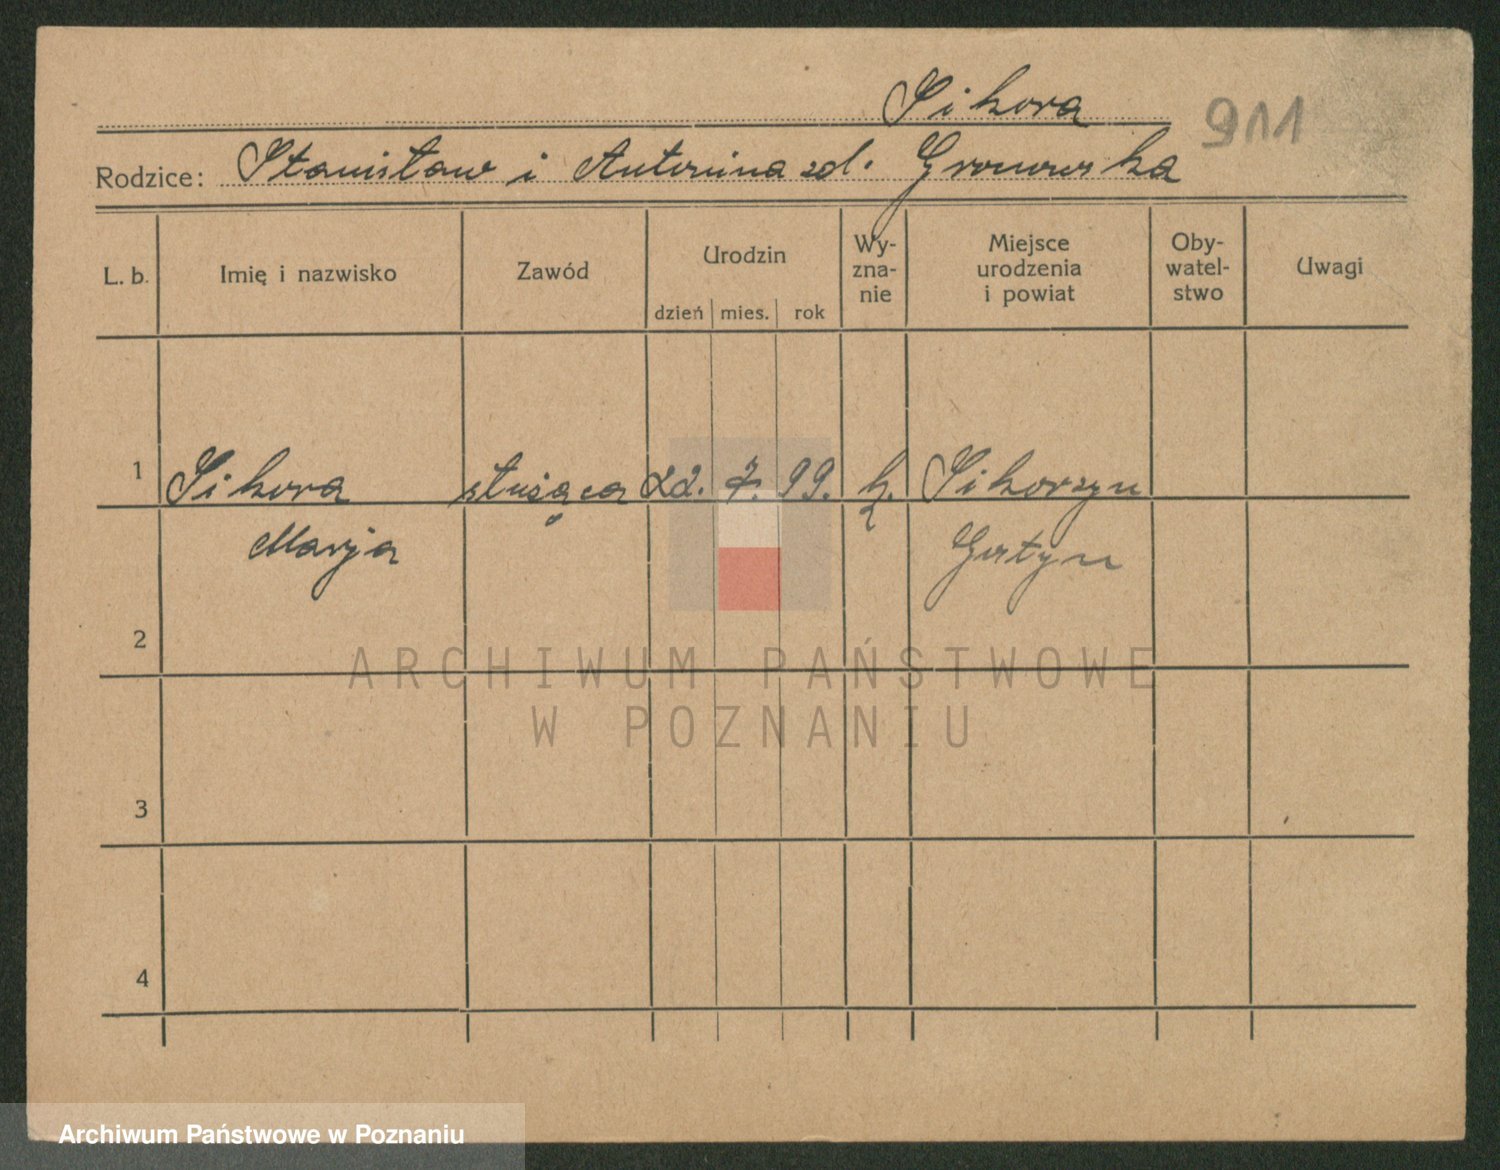 Sikora 911
Rodzice: Stanisław i Antonina zd. Gronowska
L. b. Imię i nazwisko Zawód Urodzin Wy-zna-nie Miejsce urodzenia i powiat Oby-watel-stwo Uwagi
dzień mies. rok
1 Sikora służąca 22. 7. 99. k. Sikorzyn
Marja Gostyn
2
3
4
ARCHIWUM PAŃSTWOWE
W POZNANIU
Archiwum Państwowe w Poznaniu